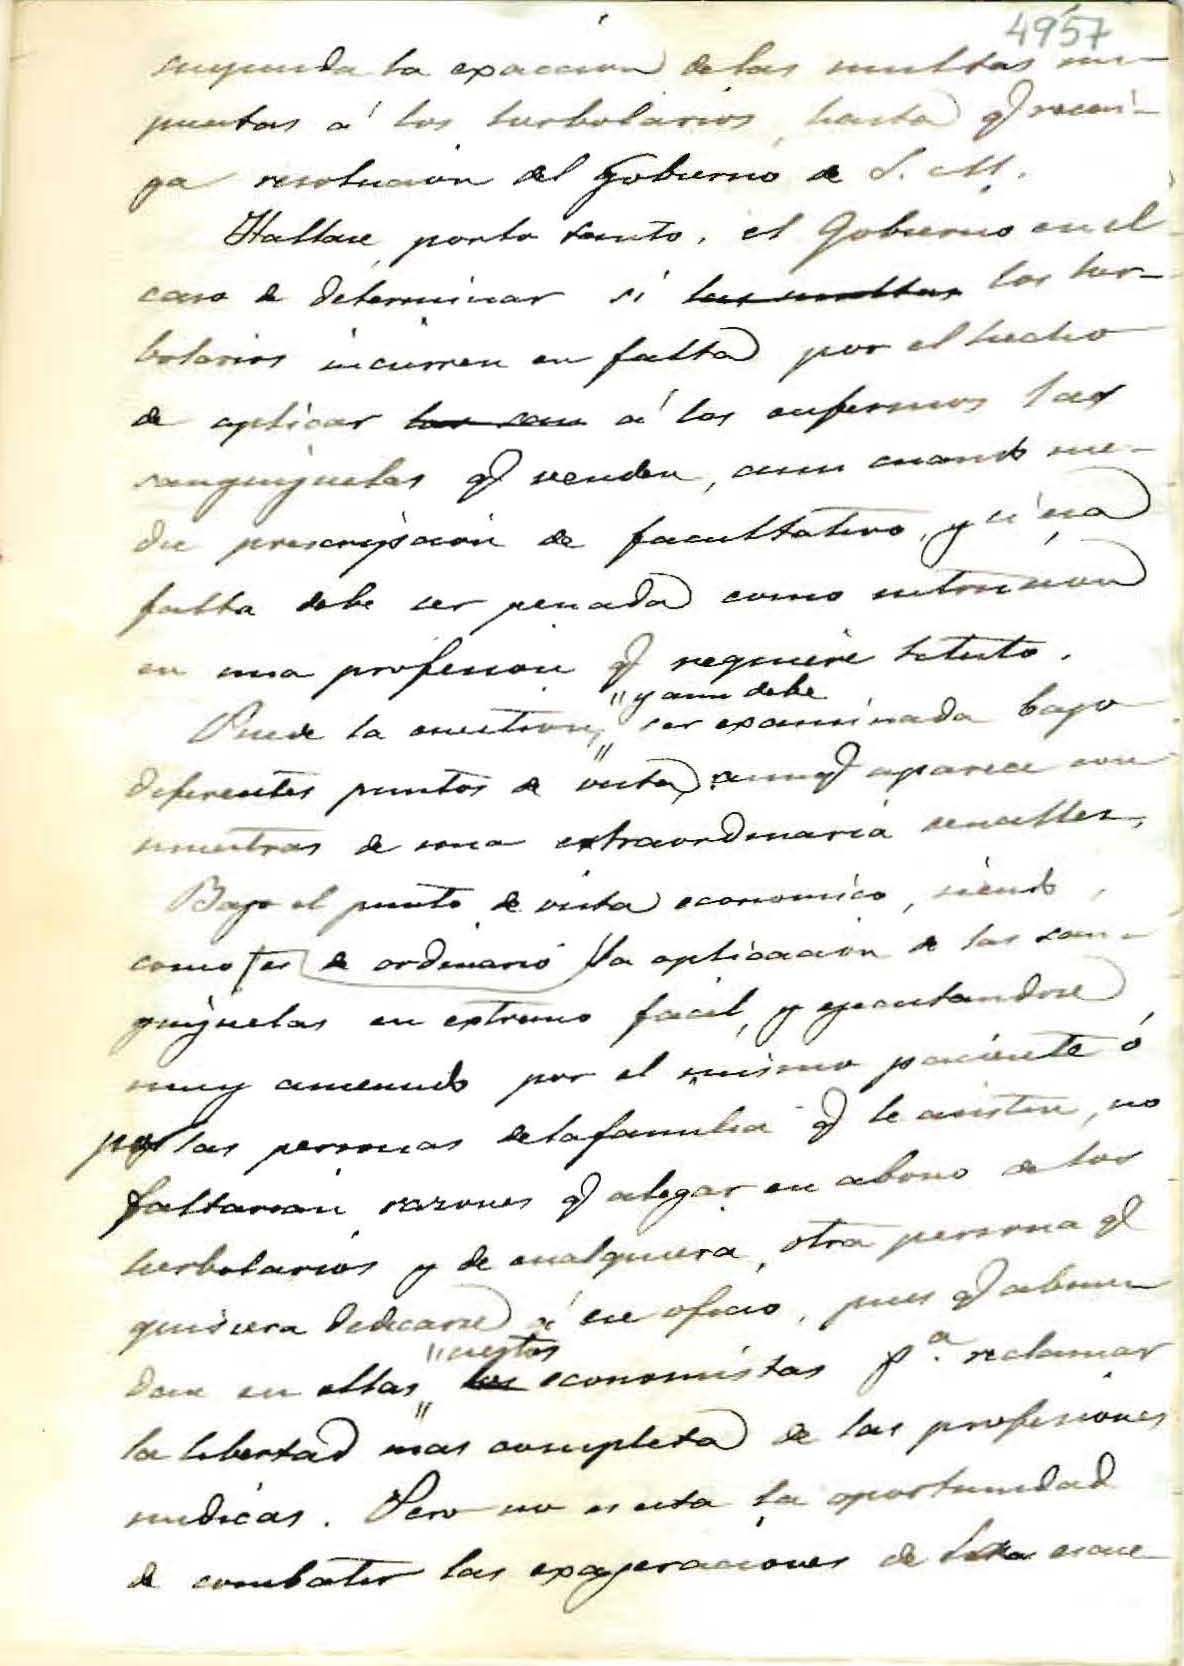 4957
suspenda la exaccion de las multas im-
puestas á los herbolarios, hasta q̃ recai-
ga resolucion del Gobierno de S. M.
Hallase, por lo tanto, el Gobierno en el
caso de determinar si las multas los her-
bolarios incurren en falta por el hecho
de aplicar las san á los enfermos las
sanguijuelas q̃ venden, aun cuando me-
die prescripcion de facultativo, y si esa
falta debe ser penada como intrusion
en una profesion q̃ requiere titulo.
Puede la cuestion, "y aun debe" ser examinada bajo
diferentes puntos de vista, aunq̃ aparece con
muestras de una extraordinaria sencillez.
Bajo el punto de vista economico, siendo,
como es de ordinario la aplicacion de las san-
guijuelas en extremo facil, y ejecutandose
muy amenudo por el mismo paciente ó
por las personas de la familia q̃ le asisten, no
faltarian razones q̃ alegar en abono de los
herbolarios y de cualquiera otra persona q̃
quisiera dedicarse á ese oficio, pues q̃ abun-
dan en ellas "ciertos" los economistas pª. reclamar
la libertad mas completa de las profesiones
medicas. Pero no es esta la oportunidad
de combatir las exageraciones de escue-